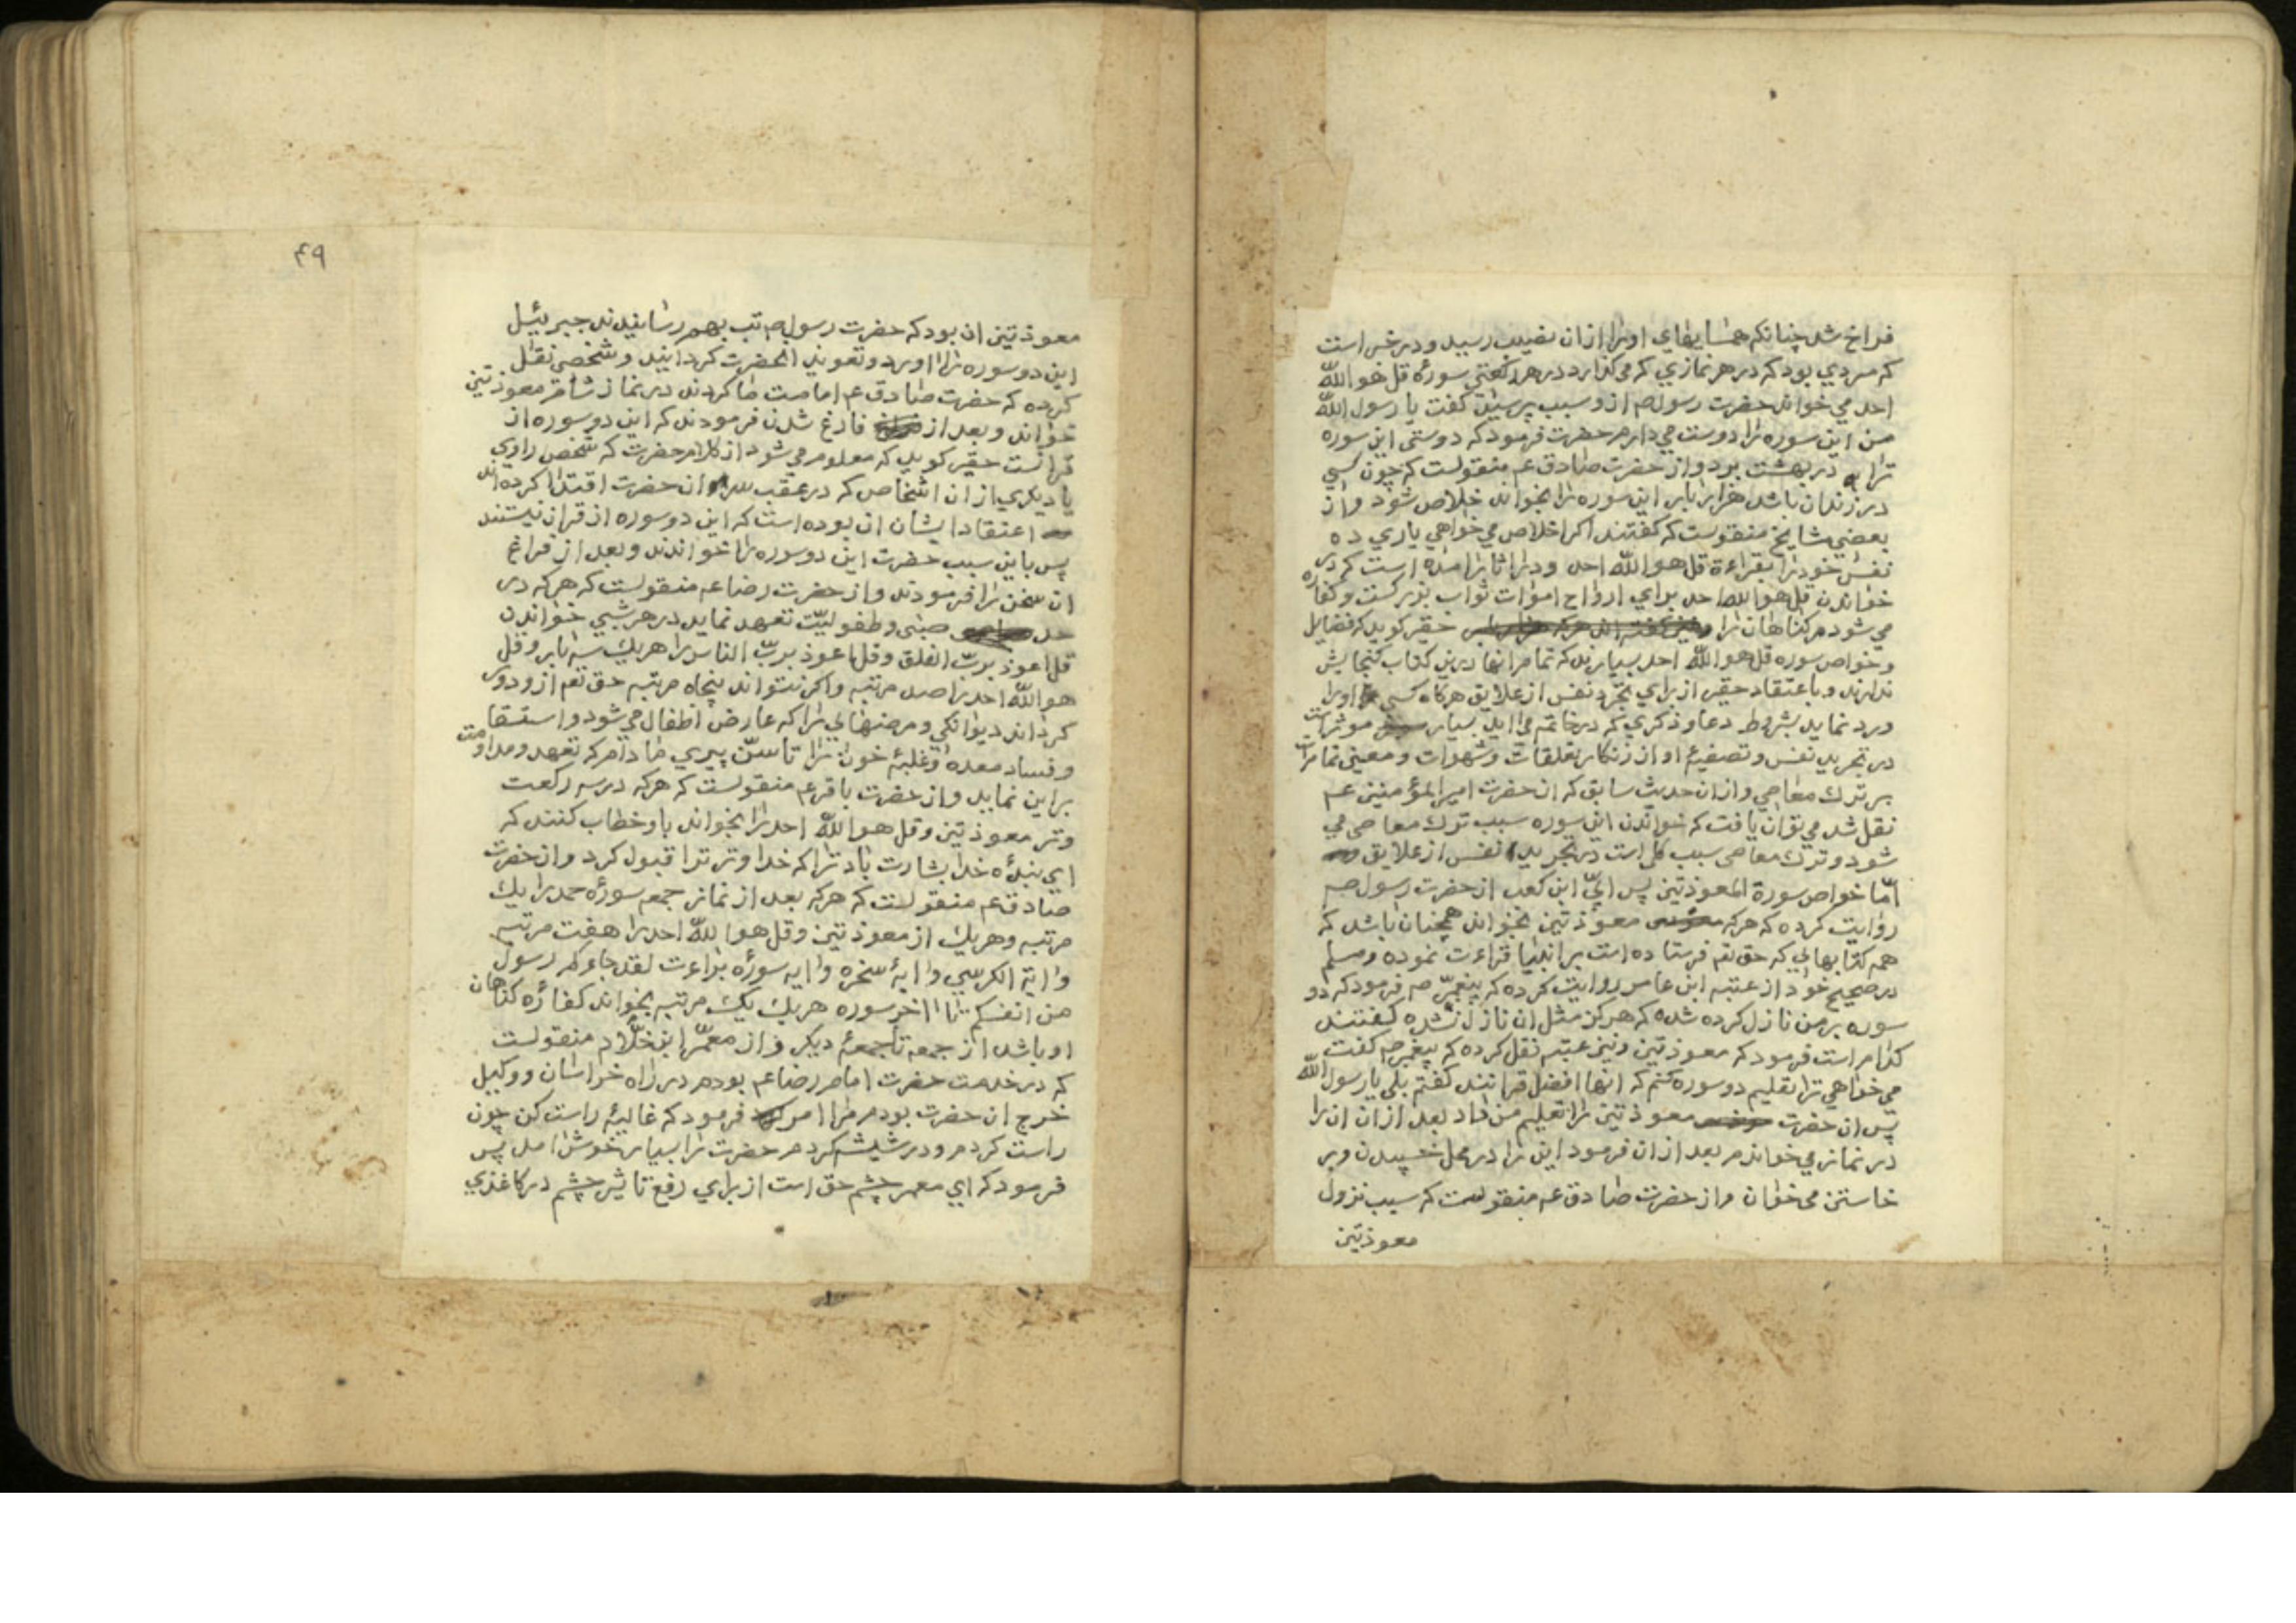 فراخ شد چنانکه همسایهای او را از ان نصیب رسید و در خبر است
که مردی بود که در هر نمازی که می کذارد در هر رکعتی سوره قل هو الله
احد می خواند حضرت رسول صم از و سبب پرسید کفت یا رسول الله
من این سوره را دوست می دارم حضرت فرمود که دوستی این سوره
ترا به در بهشت برد و از حضرت صادق عم منقولست که چون کسی
در زندان باشد هزار بار این سوره را بخواند خلاص شود و از
بعضی مشایخ منقولست که کفتند اکر اخلاص می خواهی یاری ده
نفس خود را بقراءة قل هو الله احد و در اثار امده است که در
خواندن قل هو الله احد برای ارواح اموات ثواب بزرکست و کفاره
می شود مر کناهان را حقیر کوید که فضایل
و خواص سوره قل هو الله احد بسیارند که تمام انها درین کتاب کنجایش
ندارند و باعتقاد حقیر از برای تجرد نفس از علایق هرکاه کسی او را
ورد نماید بشروط دعا و ذکری که در خاتمه می اید بسیار موثر است
در تجرید نفس و تصفیهٔ او از زنکار تعلقات و شهوات و معین تمام است
بر ترك معاصی و از ان حدیث سابق که ان حضرت امیر المؤمنین عم
نقل شد می توان یافت که خواندن این سوره سبب ترك معاصی می
شود و ترك معاصی سبب کل است در تجرید نفس از علایق
امّا خواص سورة المعوذتین پس ابیّ ابن کعب از حضرت رسول صم
روایت کرده که هرکه معوذتین بخواند همچنان باشد که
همه کتابهایی که حق تعم فرستاده است بر انبیا قراءت نموده و مسلم
در صحیح خود از عتبه ابن عامر روایت کرده که پیغمبر صم فرمود که دو
سوره بر من نازل کرده شده که هرکز مثل ان نازل نشده کفتند
کدام است فرمود که معوذتین و نیز عتبه نقل کرده که پیغمبر صم کفت
می خواهی ترا تعلیم دو سوره کنم که انها افضل قرانند کفتم بلی یا رسول الله
پس ان حضرت معوذتین را تعلیم من داد بعد از ان ان را
در نماز می خواندم بعد از ان فرمود این را در محل خسپیدن و بر
خاستن می خوان و از حضرت صادق عم منقولست که سبب نزول
معوذتین
۴۹
معوذتین ان بود که حضرت رسول صم تب بهم رسانیدند جبرئیل
این دو سوره را اورد و تعویذ انحضرت کردانید و شخصی نقل
کرده که حضرت صادق عم امامت ما کردند در نماز شام معوذتین
خواند و بعد از فارغ شدن فرمودند که این دو سوره از
قرانست حقیر کوید که معلوم می شود از کلام حضرت که شخص راوی
یا دیکری از ان اشخاص که در عقب ان حضرت اقتدا کرده اند
اعتقاد ایشان ان بوده است که این دو سوره از قران نیستند
پس باین سبب حضرت این دو سوره را خواندند و بعد از فراغ
ان سخن را فرمودند و از حضرت رضا عم منقولست که هرکه در
حد صبی و طفولیّت تعهد نماید در هر شبی خواندن
قل اعوذ بربّ الفلق و قل اعوذ بربّ الناس را هریك سه بار و قل
هو الله احد را صد مرتبه و اکر نتواند پنجاه مرتبه حق تعم از و دور
کرداند دیوانکی و مرضهایی را که عارض اطفال می شود و استسقا
و فساد معده و غلبهٔ خون را تا سنّ پیری مادام که تعهد و مداومت
بر این نماید و از حضرت باقر عم منقولست که هرکه در سه رکعت
وتر معوذتین و قل هو الله احد را بخواند باو خطاب کنند که
ای بندهٔ خدا بشارت باد ترا که خدا وتر ترا قبول کرد و از حضرت
صادق عم منقولست که هرکه بعد از نماز جمعه سوره حمد را یك
مرتبه و هریك از معوذتین و قل هو الله احد را هفت مرتبه
و ایة الکرسی و ایهٔ سخره و ایه سوره براءت لقد جاءکم رسول
من انفسکم تا اخر سوره هریك یك مرتبه بخواند کفاره کناهان
او باشد از جمعه تا جمعهٔ دیکر و از معمّر ابن خلّاد منقولست
که در خدمت حضرت امام رضا عم بودم در راه خراسان و وکیل
خرج ان حضرت بودم مرا امر فرمود که غالیهٔ راست کن چون
راست کردم و در شیشه کردم حضرت را بسیار خوش امد پس
فرمود که ای معمر چشم حق است از برای رفع تاثیر چشم در کاغذی